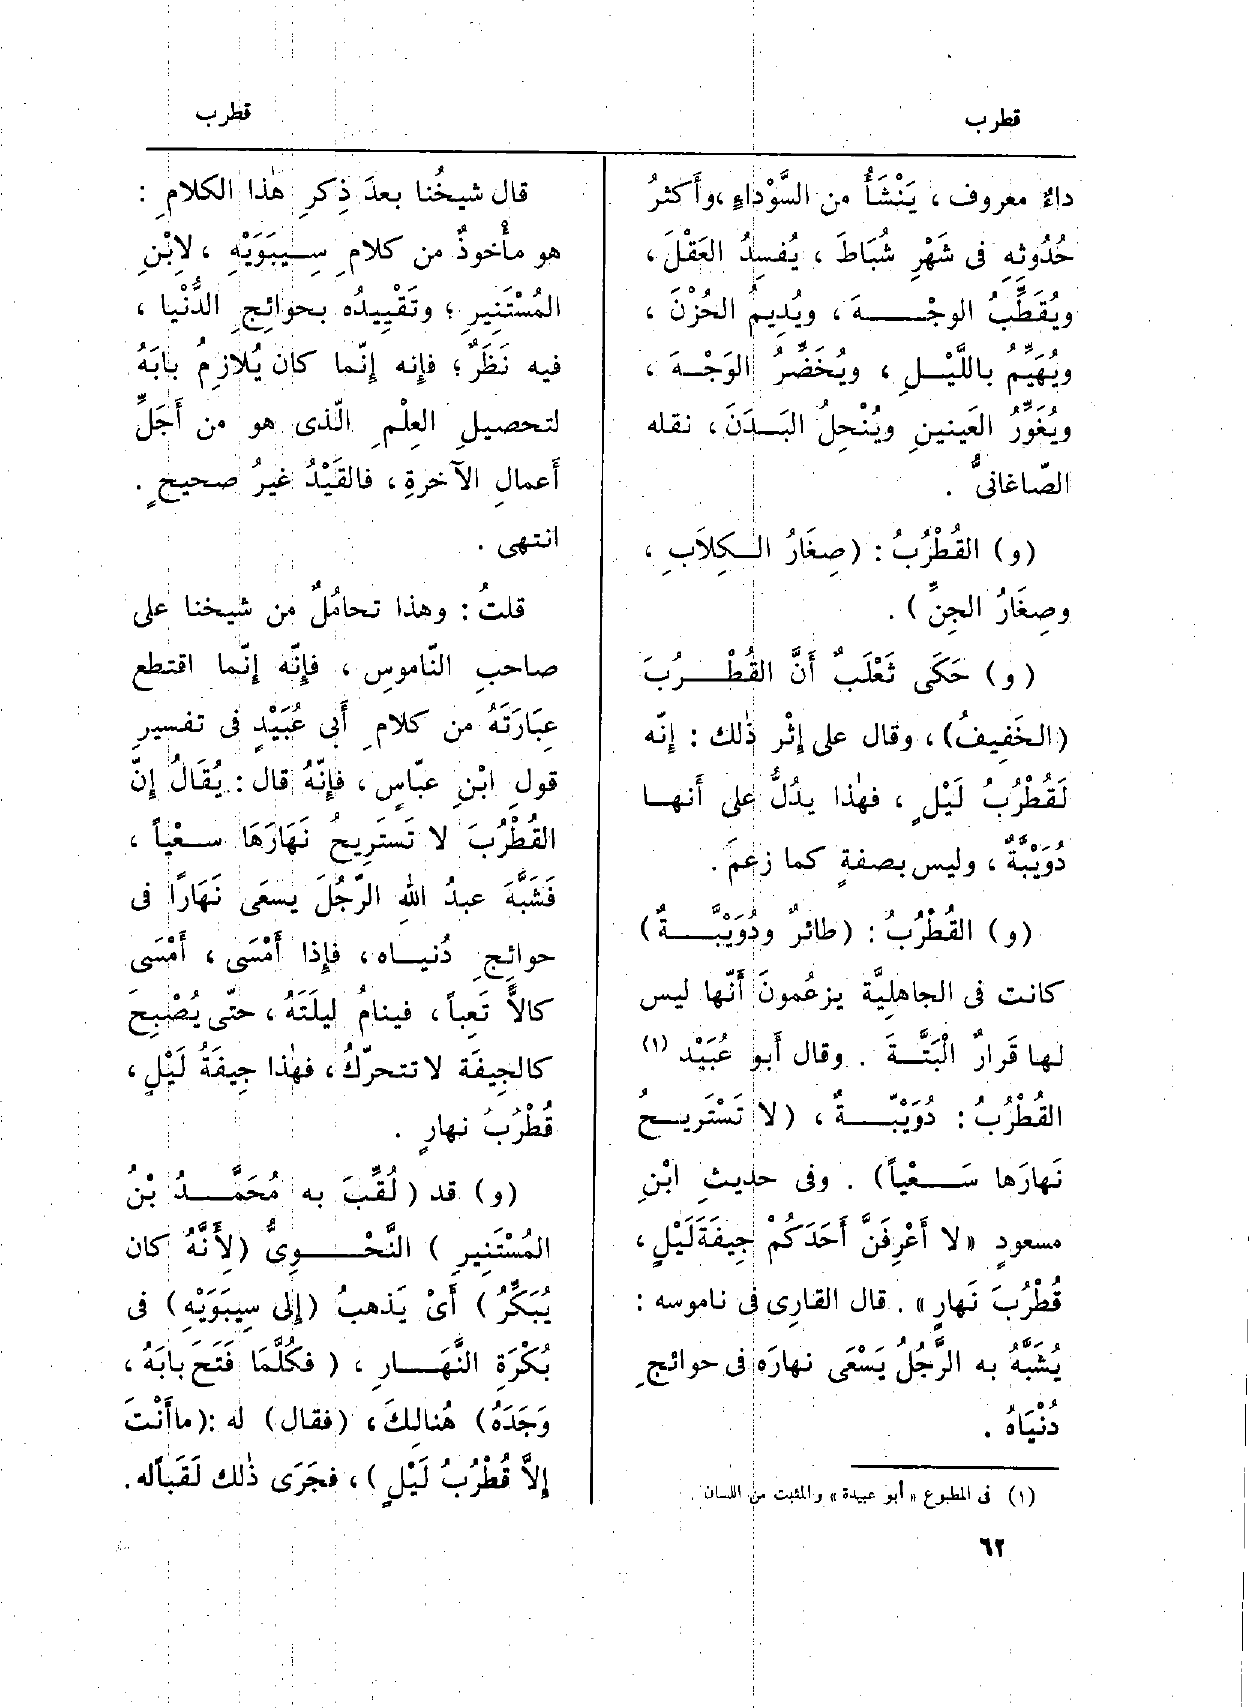 قطرب
قطرب
داءٌ معروف ، يَنْشَأُ من السَّوْداءِ ، وأَكثرُ
حُدُوثِهِ فى شَهْرِ شُبَاطَ ، يُفسِدُ العَقْلَ ،
ويُقَطِّبُ الوجْـــهَ ، ويُدِيمُ الحُزْنَ ،
ويُهَيِّمُ باللَّيْــلِ ، ويُخَضِّرُ الوَجْـهَ ،
ويُغَوِّرُ العَينينِ ويُنْحِلُ البَــدَنَ ، نقله
الصّاغانىُّ .
(و) القُطْرُبُ : (صِغَارُ الــكِلَابِ ،
وصِغَارُ الجِنِّ ) .
(و) حَكَى ثَعْلَبٌ أَنَّ القُطْــرُبَ
(الخَفِيفُ) ، وقال على إِثْرِ ذٰلك : إِنّه
لَقُطْرُبُ لَيْلٍ ، فهٰذا يدُلُّ على أَنهــا
دُوَيْبَّةٌ ، وليس بصفةٍ كما زعمَ .
(و) القُطْرُبُ : (طائرٌ ودُوَيْبَّـــةٌ)
كانت فى الجاهليَّة يزعُمونَ أَنّها ليس
لها قَرارٌ الْبَتَّــةَ . وقال أَبو عُبَيْد (١)
القُطْرُبُ : دُوَيْبّـــةٌ ، (لا تَسْتَريــحُ
نَهارَها سَــعْياً) . وفى حديثِ ابْنِ
مسعودٍ «لا أَعْرِفَنَّ أَحَدَكُمْ جِيفَةَ لَيْلٍ ،
قُطْرُبَ نَهارٍ» . قال القارِى فى ناموسه :
يُشَبَّهُ به الرَّجُلُ يَسْعَى نهارَه فى حوائجِ
دُنْيَاهُ .
(١) فى المطبوع «أبو عبيدة» والمثبت من اللسان .
قال شيخُنا بعدَ ذِكرِ هٰذا الكلامِ :
هو مأْخوذٌ من كلامِ سِــيبَوَيْهِ ، لِابْنِ
المُسْتَنِيرِ ؛ وتَقْيِيدُه بحوائِجِ الدُّنْيا ،
فيه نَظَرٌ ؛ فإِنه إِنّما كان يُلازِمُ بابَهُ
لتحصيلِ العِلْمِ الّذى هو من أَجَلِّ
أَعمالِ الآخرةِ ، فالقَيْدُ غيرُ صحيحٍ .
انتهى .
قلتُ : وهذا تحامُلٌ من شيخنا على
صاحبِ النّاموسِ ، فإِنّه إِنّما اقتطع
عِبَارَتَهُ من كلامِ أَبى عُبَيْدٍ فى تفسيرِ
قولِ ابْنِ عبّاسٍ ، فإِنَّهُ قال : يُقَالُ إِنّ
القُطْرُبَ لا تَستَرِيحُ نَهَارَهَا ســعْياً ،
فَشَبَّهَ عبدُ اللهِ الرّجُلَ يسعَى نَهَارًا فى
حوائجِ دُنيــاه ، فإِذا أَمْسَى ، أَمْسَى
كالاًّ تَعِباً ، فينامُ ليلَتَهُ ، حتّى يُصْبِحَ
كالجِيفَة لا تتحرّكُ ، فهٰذا جِيفَةُ لَيْلٍ ،
قُطْرُبُ نهارٍ .
(و) قد (لُقِّبَ به مُحَمَّــدُ بْنُ
المُسْتَنِيرِ ) النَّحْــوِىُّ (لِأَنَّهُ كان
يُبَكِّرُ ) أَىْ يَذهبُ (إِلى سِيبَوَيْهِ) فى
بُكْرَةِ النَّهَــارِ ، ( فكُلَّمَا فَتَحَ بابَهُ ،
وَجَدَهُ) هُنالِكَ ، (فقال) له :(ما أَنْتَ
إِلاَّ قُطْرُبُ لَيْلٍ ) ، فجَرَى ذٰلك لَقَباً له.
٦٢